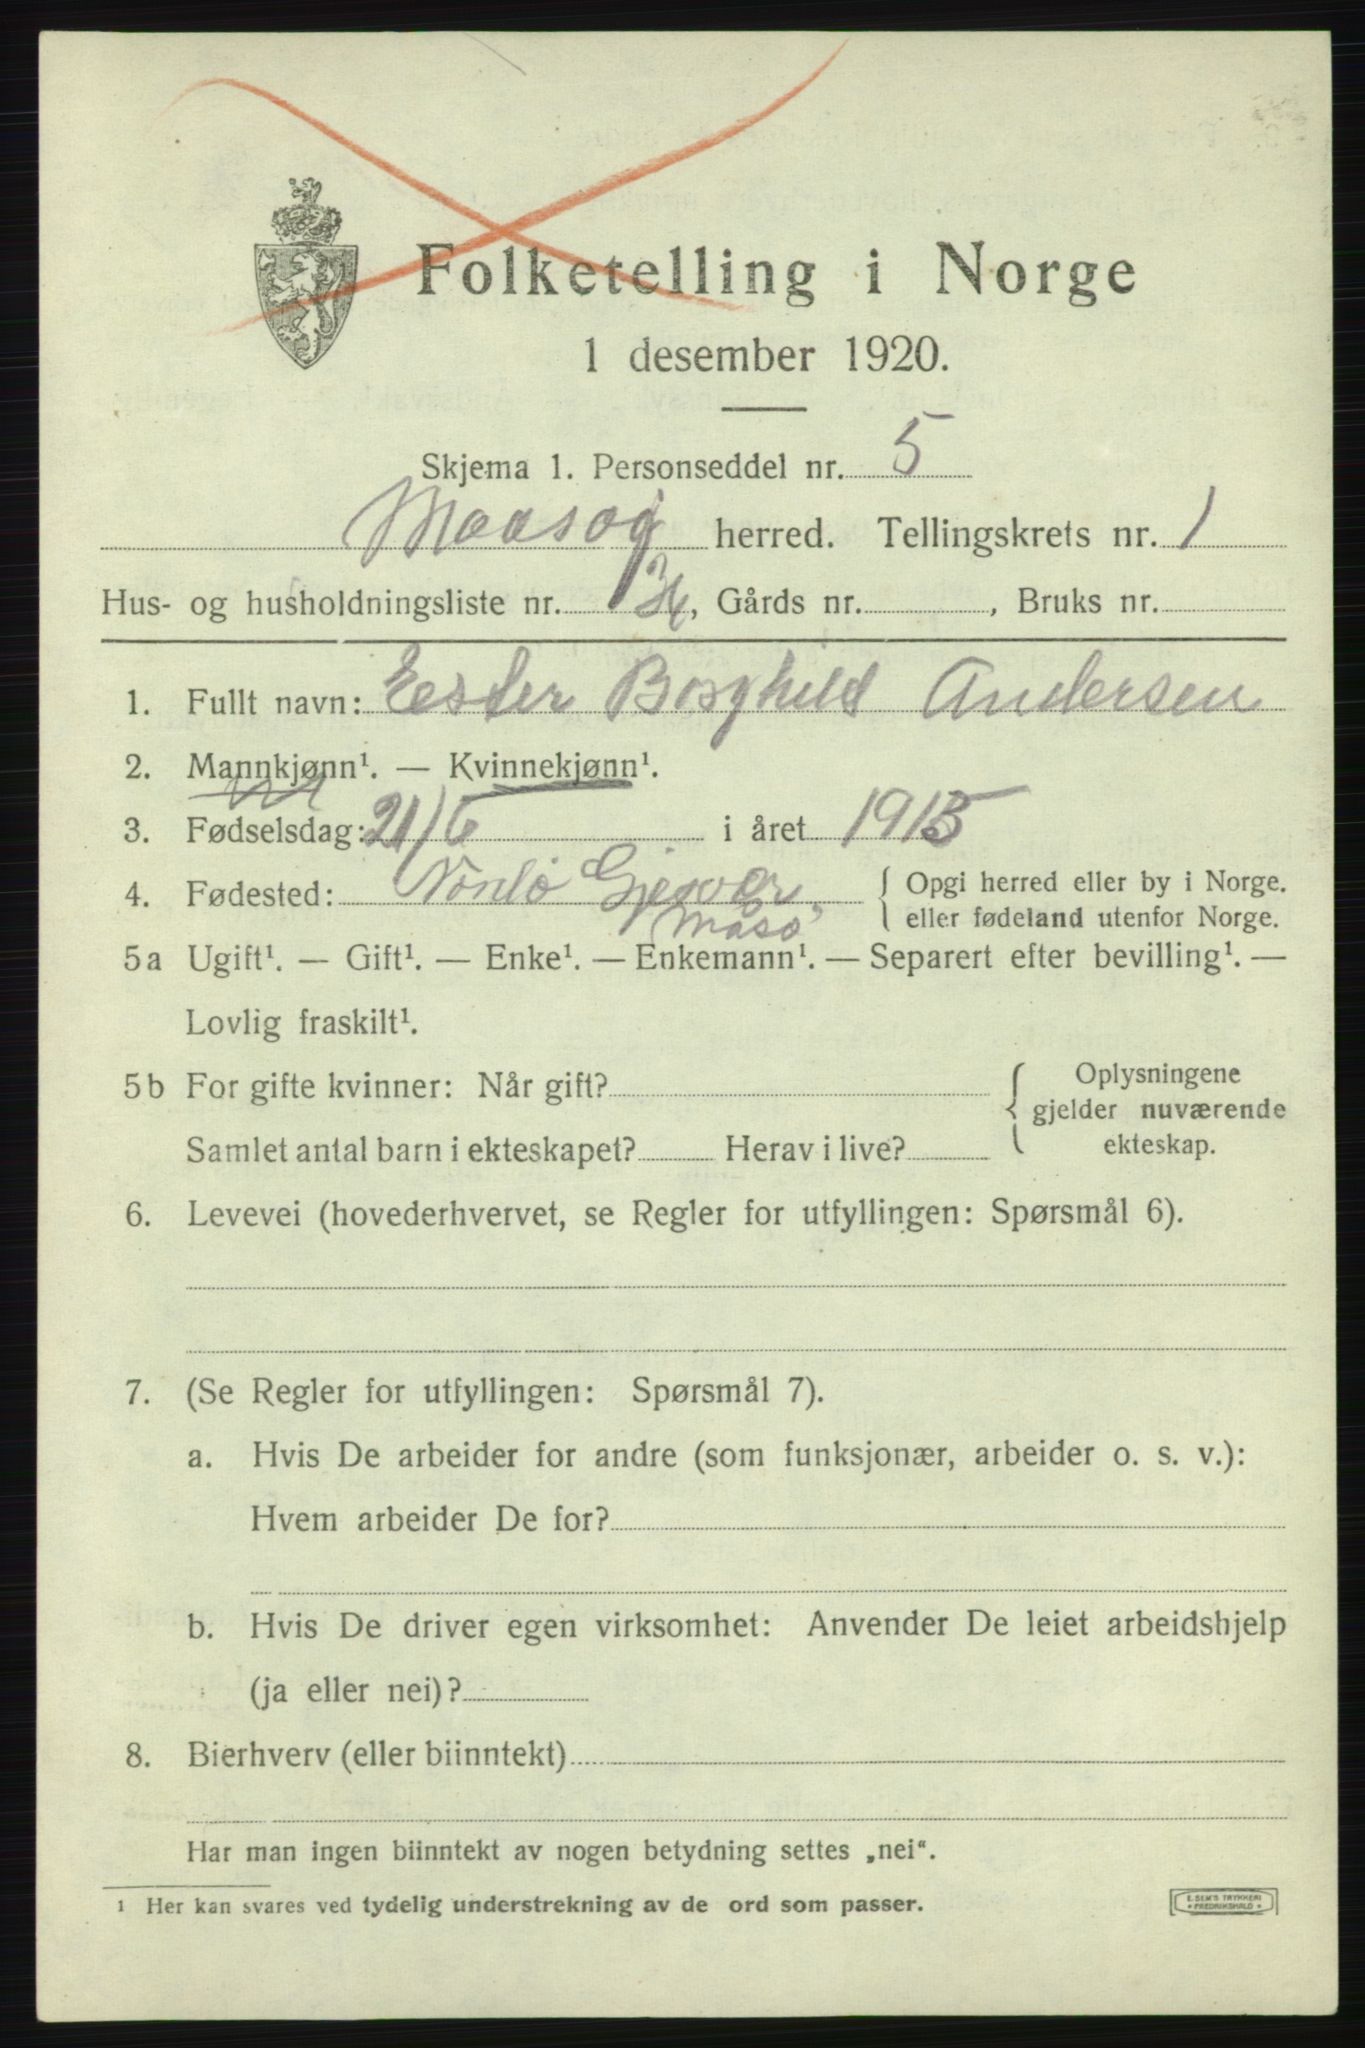 Folketelling i Norge
1 desember 1920.
Skjema 1. Personseddel nr. 5
herred. Tellingskrets nr. 1
Hus- og husholdningsliste nr. , Gårds nr. , Bruks nr.
1. Fullt navn: Eester Borghild Andersen
2. Mannkjønn¹. — Kvinnekjønn¹.
3. Fødselsdag: 21/6 i året 1915
4. Fødested: Gjesvær, { Opgi herred eller by i Norge.
Måsø eller fødeland utenfor Norge.
5a Ugift¹. — Gift¹. — Enke¹. — Enkemann¹. — Separert efter bevilling¹. —
Lovlig fraskilt¹.
5b For gifte kvinner: Når gift? { Oplysningene
gjelder nuværende
Samlet antal barn i ekteskapet? Herav i live? ekteskap.
6. Levevei (hovederhvervet, se Regler for utfyllingen: Spørsmål 6).
7. (Se Regler for utfyllingen: Spørsmål 7).
a. Hvis De arbeider for andre (som funksjonær, arbeider o. s. v.):
Hvem arbeider De for?
b. Hvis De driver egen virksomhet: Anvender De leiet arbeidshjelp
(ja eller nei)?
8. Bierhverv (eller biinntekt)
Har man ingen biinntekt av nogen betydning settes „nei“.
¹ Her kan svares ved tydelig understrekning av de ord som passer.
E. SEM'S TRYKKERI
* FREDRIKSHALD *